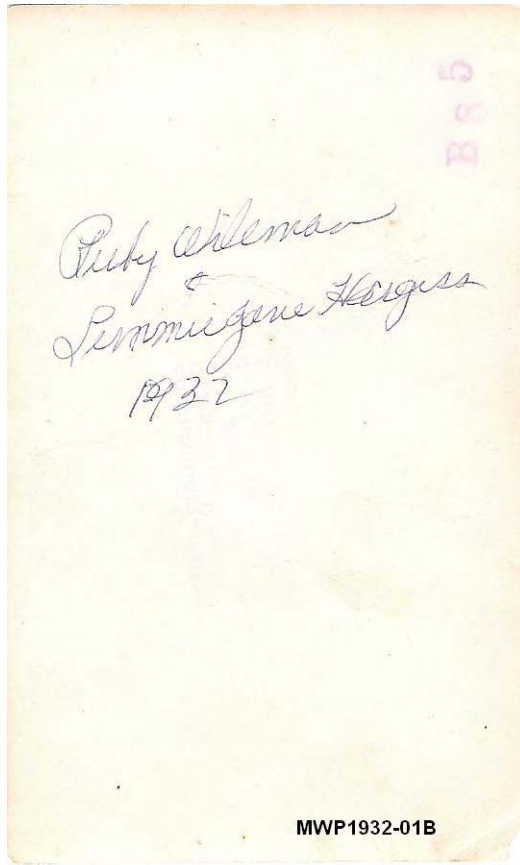 Ruby Wileman
&
Lummie Gene Hargiss
1932
MWP1932-01B